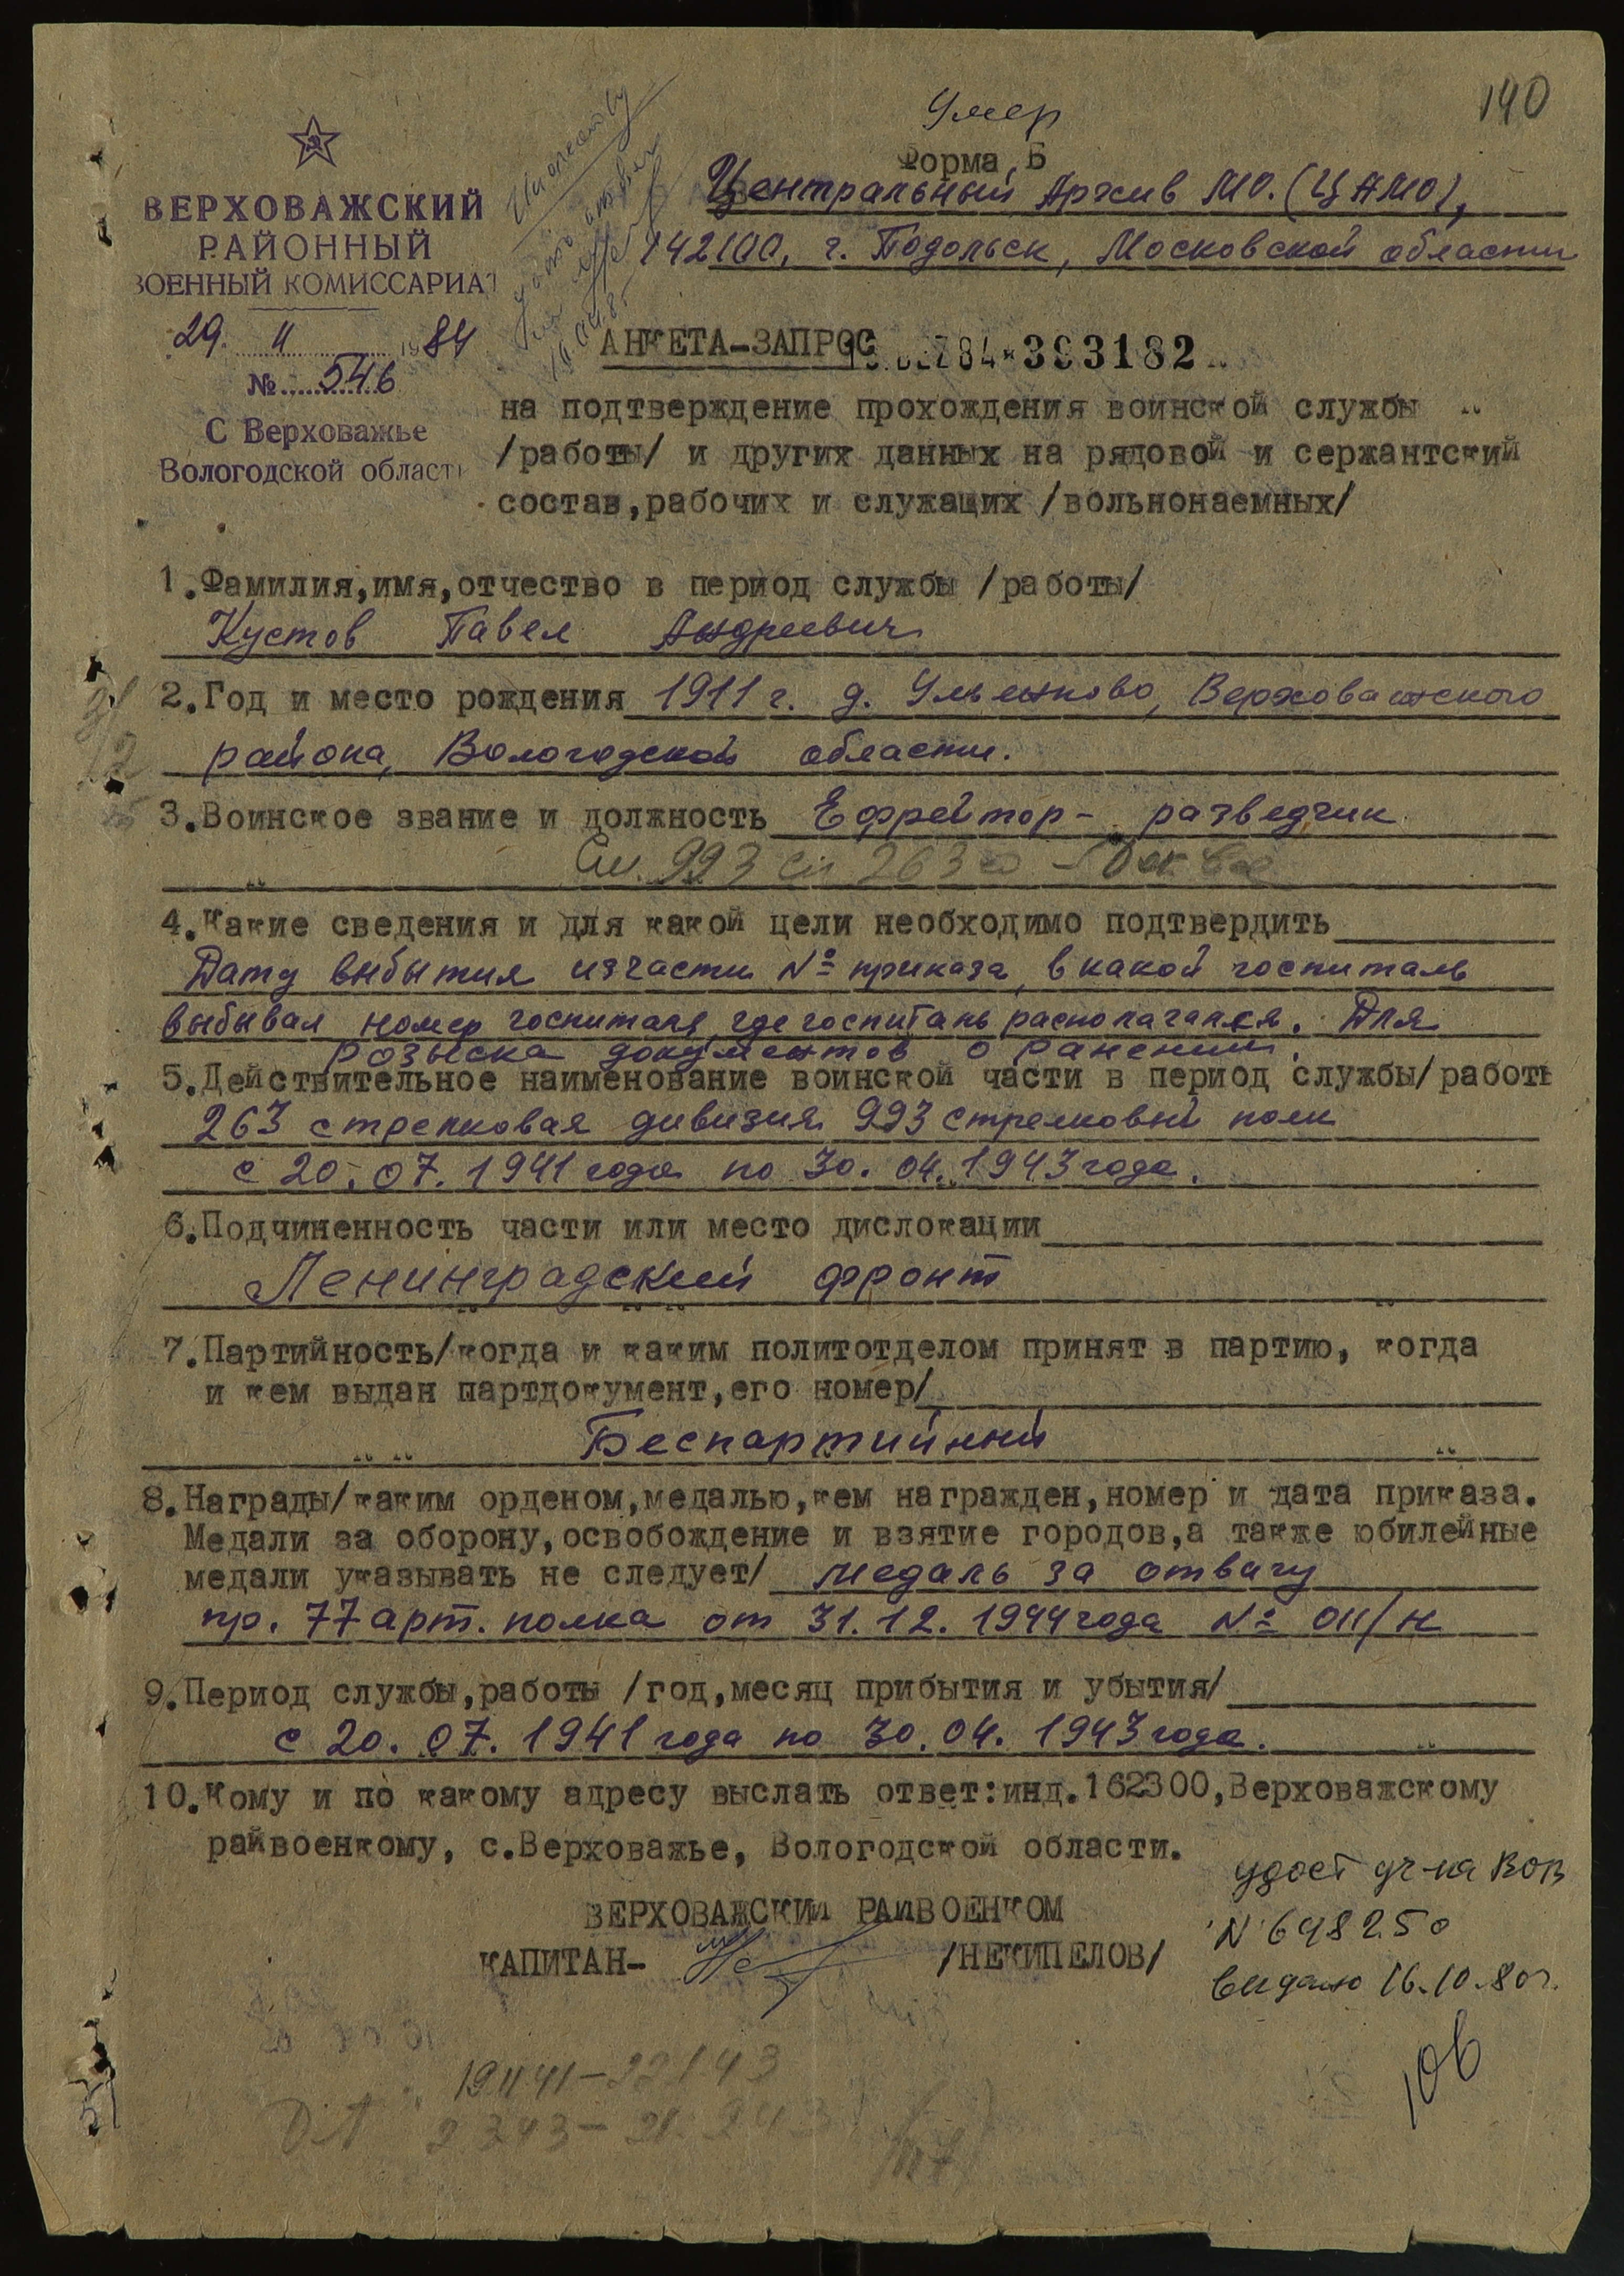 140
Умер
Форма Б
ВЕРХОВАЖСКИЙ
РАЙОННЫЙ
ВОЕННЫЙ КОМИССАРИАТ
29. 11 1984
№ 546
С Верховажье
Вологодской област
Центральный Архив МО. (ЦАМО),
142100, г. Подольск, Московской области
АНКЕТА-ЗАПРОС
393182
на подтверждение прохождения воинской службы
/работы/ и других данных на рядовой и сержантский
состав, рабочих и служащих /вольнонаемных/
1. Фамилия, имя, отчество в период службы /работы/
Кустов Павел Андреевич
2. Год и место рождения 1911 г. д. Ульянково, Верховажского
района, Вологодской области.
3. Воинское звание и должность Ефрейтор - разведчик
993 сп 263
4. Какие сведения и для какой цели необходимо подтвердить
Дату выбытия из части № приказа, в какой госпиталь
выбывал номер госпиталя, где госпиталь располагался. Для
розыска документов о ранении.
5. Действительное наименование воинской части в период службы/работы
263 стрелковая дивизия 993 стрелковый полк
с 20. 07. 1941 года по 30. 04. 1943 года.
6. Подчиненность части или место дислокации
Ленинградский фронт
7. Партийность/когда и каким политотделом принят в партию, когда
и кем выдан партдокумент, его номер/
Беспартийный
8. Награды/каким орденом, медалью, кем награжден, номер и дата приказа.
Медали за оборону, освобождение и взятие городов, а также юбилейные
медали указывать не следует/ медаль за отвагу
пр. 77 арт. полка от 31. 12. 1944 года № 011/н
9. Период службы, работы /год, месяц прибытия и убытия/
с 20. 07. 1941 года по 30. 04. 1943 года.
10. Кому и по какому адресу выслать ответ: инд. 162300, Верховажскому
райвоенкому, с. Верховажье, Вологодской области.
ВЕРХОВАЖСКИЙ РАЙВОЕНКОМ
КАПИТАН- /НЕКИПЕЛОВ/
удост уч-ка ВОВ
N 648250
выдано 16.10.80г.
106